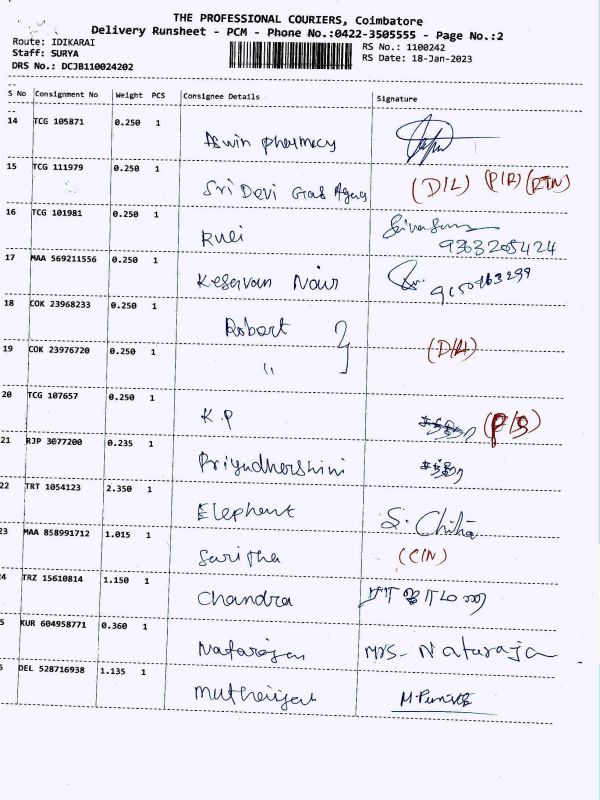 THE PROFESSIONAL COURIERS, Coimbatore
Delivery Runsheet - PCM - Phone No.:0422-3505555 - Page No.:2
Route: IDIKARAI
RS No.: 1100242
Staff: SURYA
RS Date: 18-Jan-2023
DRS No.: DCJB110024202
S No Consignment No Weight PCS Consignee Details Signature
14 TCG 105871 0.250 1 Aswin pharmacy
15 TCG 111979 0.250 1 Sri Devi Gas (D/L) (P/R) (RTN)
16 TCG 101981 0.250 1
9363205424
17 MAA 569211556 0.250 1 Kesavan Nair
18 COK 23968233 0.250 1 Robart
19 COK 23976720 0.250 1 "
20 TCG 107657 0.250 1 K.P
21 RJP 3077200 0.235 1 Priyadharshini
22 TRT 1054123 2.350 1 Elephant S. Chitra
23 MAA 858991712 1.015 1 Saritha (C/N)
24 TRZ 15610814 1.150 1 Chandra
5 KUR 604958771 0.360 1 Natarajan Mrs- Nataraja
DEL 528716938 1.135 1